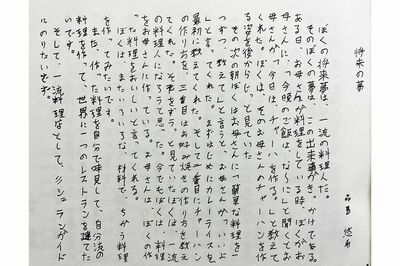 将来の夢
品島 悠希
ぼくの将来夢は、一流の料理人だ。
そのぼくの夢は、この出来事がきっかけである
ある日、お母さんが料理をしている時、ぼくがお
母さんに、「今晩のご飯は、な〜に」と聞くとお
母さんが「今日は、チャーハンを作る。」と教えて
くれた。ぼくは、そのお母さんのチャーハンを作
る姿を後からじっと見ていた
その次の朝ぼくはお母さんに「簡単な料理を一
つずつ、教えて」と言うと、お母さんが「いいよ
と言ってくれた。まずはじめにカレーライスを
最初に教えてくれた。そして二番目はチャーハン
の作り方を、三番目はお好み焼きの作り方を教え
てくれた。それをずっと見ていたぼくは、一流
の料理人になろうと思った。今でもぼくは、料理
をお母さんに作っている。お母さんは、ぼくの作
った料理をおいしいと言ってくれる。
ぼくは、まだいろいろな材料で、ちがう料理
を作ってみたいです。
また、作った料理を自分で味見して、自分流の
料理を作って、世界に一つのレストランを建てた
いです。
そして、一流料理人なとして、ミシュランガイド
にのりたいです。